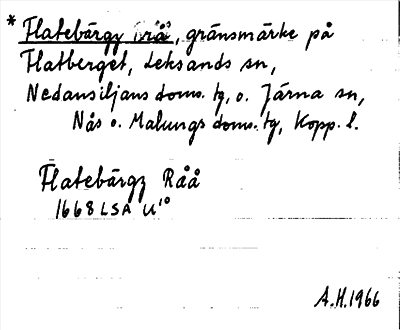 * FlatebärgzRåå, gränsmärke på
Flatberget, Leksands sn,
Nedansiljans doms. tg, o. Järna sn,
Nås o. Malungs doms. tg, Kopp. l.
Flatebärgz Råå
1668 LSA U¹⁰
A.H. 1966